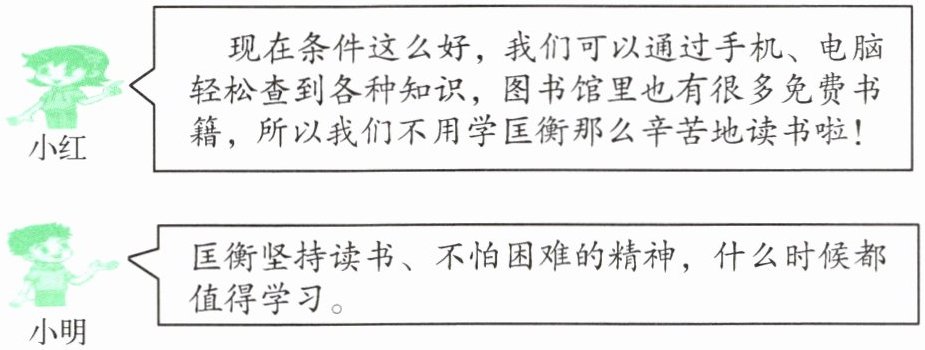 现在条件这么好，我们可以通过手机、电脑
轻松查到各种知识，图书馆里也有很多免费书
籍，所以我们不用学匡衡那么辛苦地读书啦！
小红
匡衡坚持读书、不怕困难的精神，什么时候都
值得学习。
小明